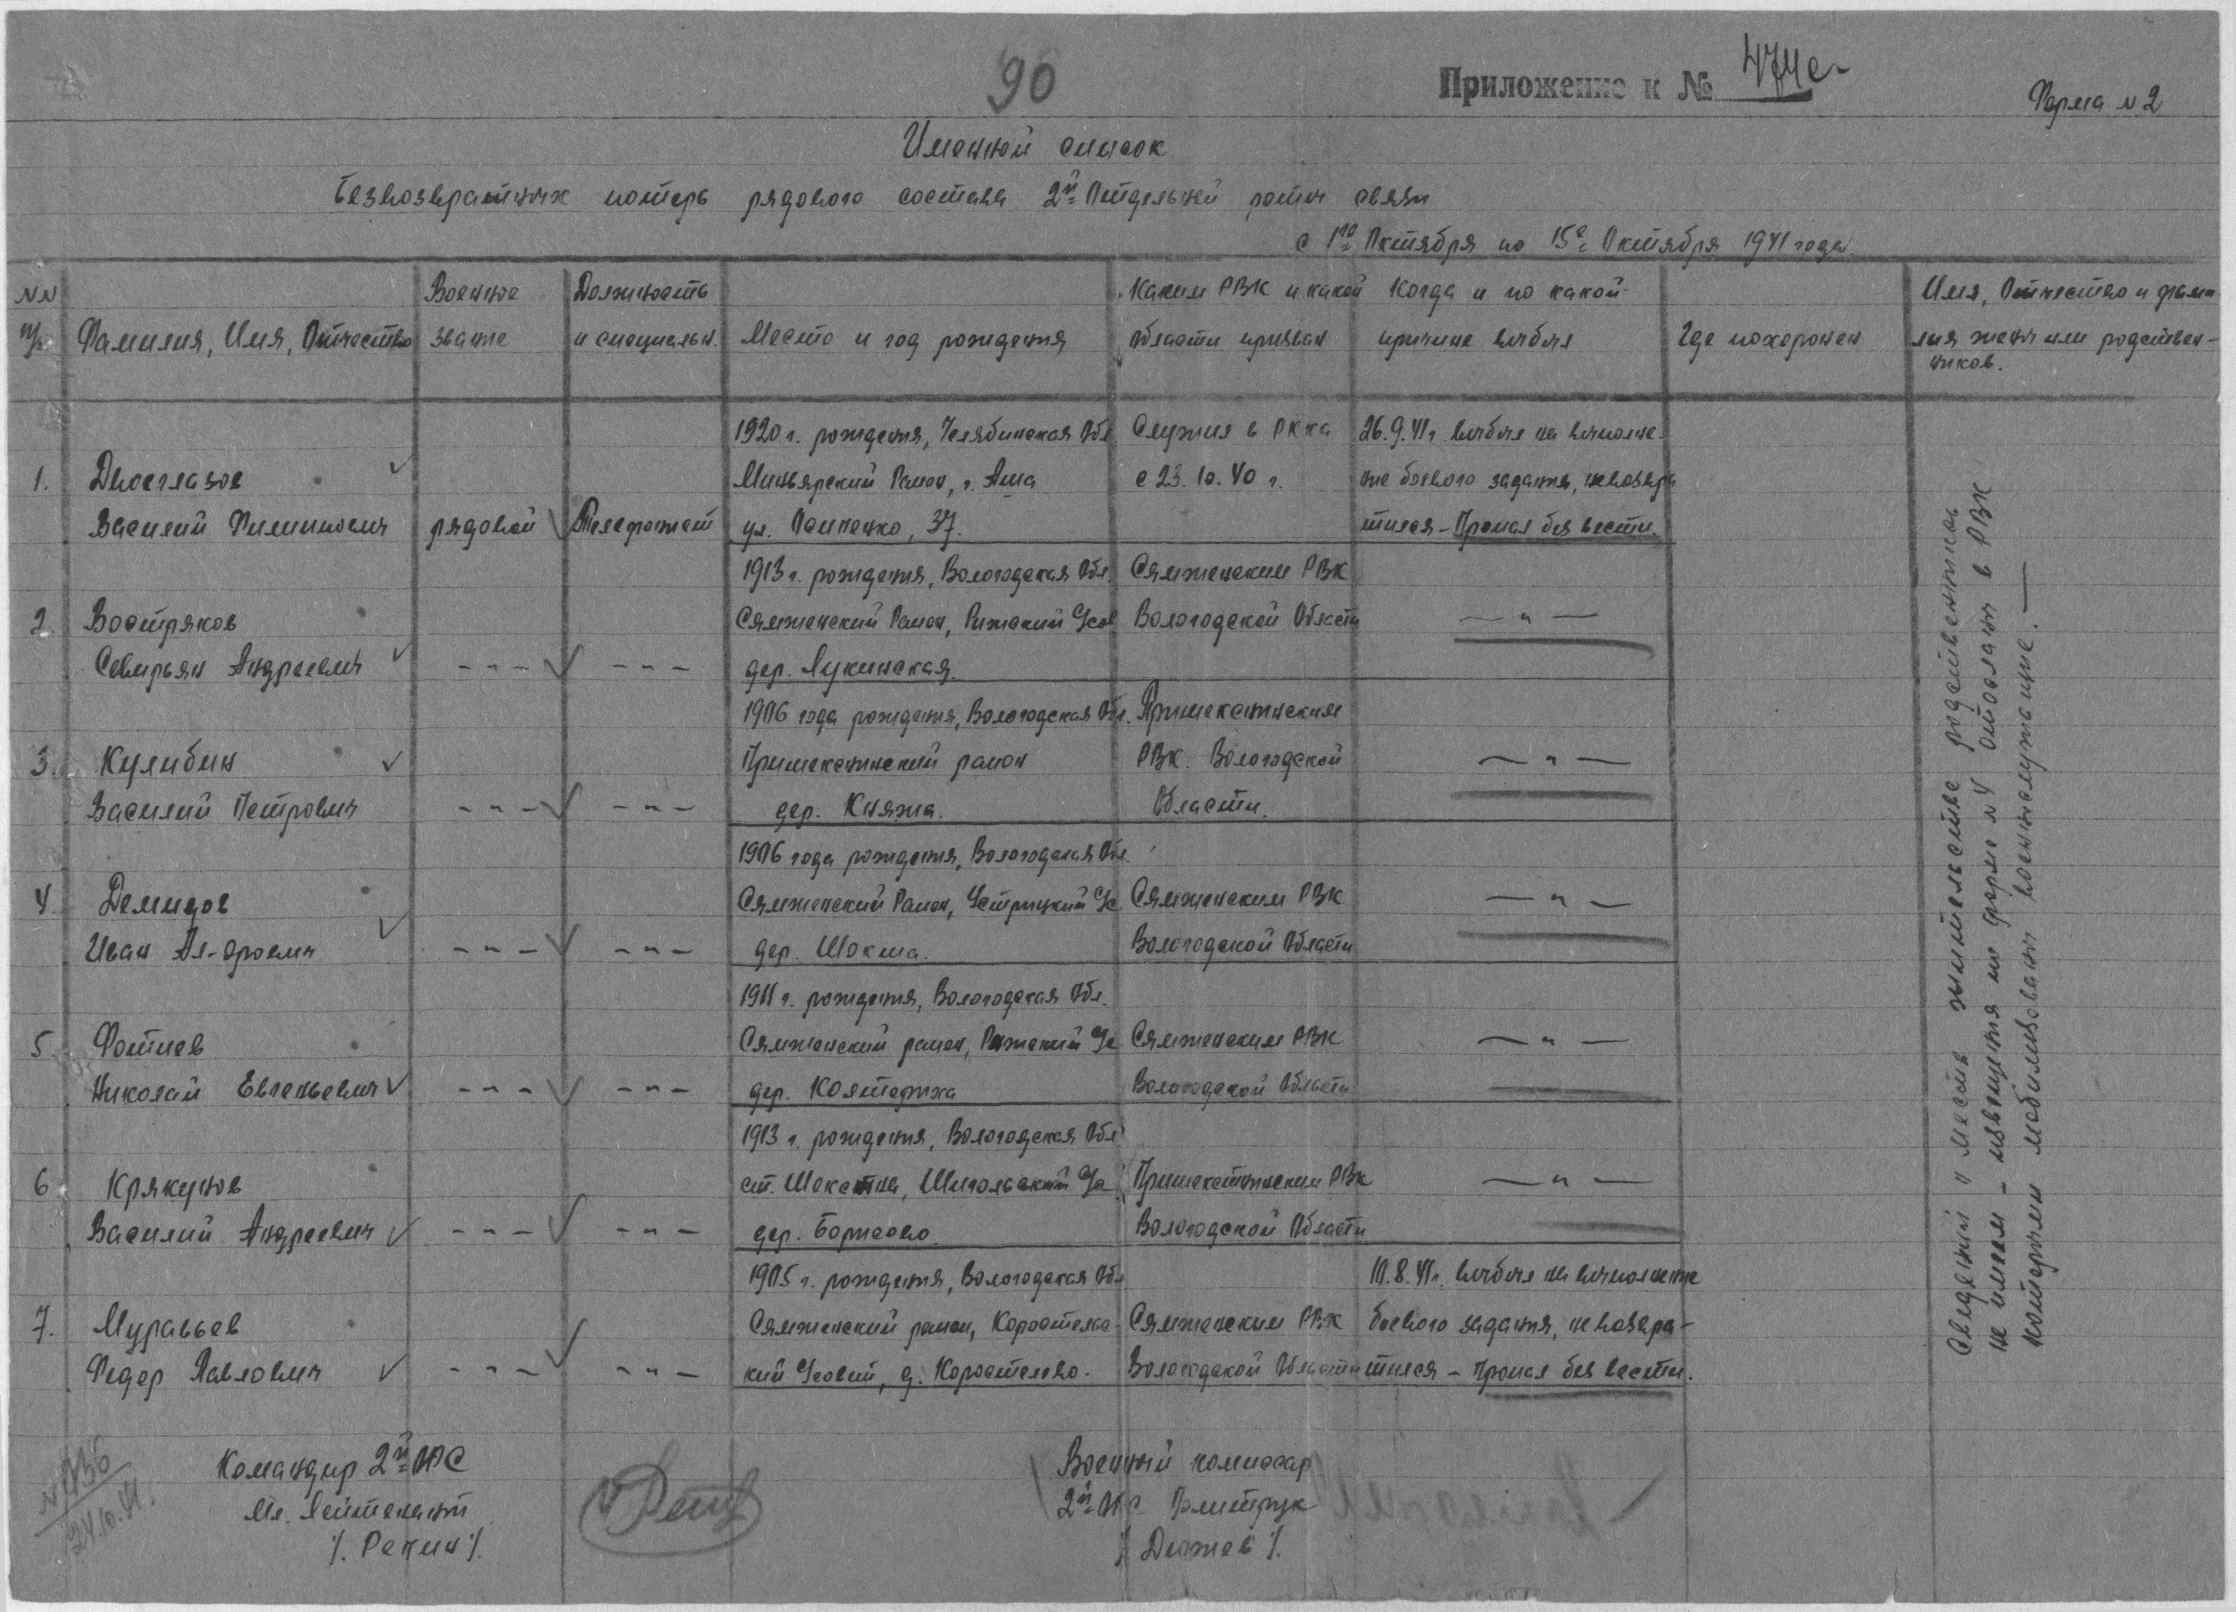 90
Приложение к № 474с
Форма №2
Именной список
безвозвратных потерь рядового состава 2й Отдельной роты связи
с 1го Октября по 15е Октября 1941 года.
NN п/п
Фамилия, Имя, Отчество
Военное звание
Должность и специальн.
Место и год рождения
Каким РВК и какой Области призван
Когда и по какой причине выбыл
Где похоронен
Имя, Отчество и фамилия жены или родственников.
1.
Двоеглазов
Василий Филиппович
рядовой
Телефонист
1920 г. рождения, Челябинская Обл
Миньярский Район, г. Аша
ул. 37.
Служил в РККА
с 23.10.40 г.
26.9.41г. выбыл на выполне-
ние боевого задания, невозвра
тился - Пропал без вести.
2.
Востряков
Северьян Андреевич
- " -
- " -
1913 г. рождения, Вологодская Обл.
Сямженский Район, Ражский Усов
дер. Лукинская.
Сямженским РВК
Вологодской Области
- " -
3.
Кулибин
Василий Петрович
- " -
- " -
1906 года рождения, Вологодская Обл.
Пришекснинский район
дер. Княжа.
Пришекснинским
РВК. Вологодской
Области.
- " -
4
Демидов
Иван Ал-дрович
- " -
- " -
1906 года рождения, Вологодская Обл.
Сямженский Район, Устрицкий Ус
дер. Шокша.
Сямженским РВК
Вологодской Области
- " -
5
Фотиев
Николай Евгеньевич
- " -
- " -
1911 г. рождения, Вологодская Обл.
Сямженский район, Ражский Ус
дер. Коляторжка
Сямженским РВК
Вологодской Области
- " -
6
Крякунов
Василий Андреевич
- " -
- " -
1913 г. рождения, Вологодская Обл
ст. Шексна, Шигольский Ус
дер. Борисово.
Пришекснинским РВК
Вологодской Области
- " -
7.
Муравьев
Федор Павлович
- " -
- " -
1905 г. рождения, Вологодская Обл
Сямженский район, Коростелевс-
кий Усовий, д. Коростелево.
Сямженским РВК
Вологодской Области
10.8.41г. выбыл на выполнение
боевого задания, невозвра-
тился - Пропал без вести.
Сведений о месте жительстве родственников
не имеем - извещения по форме №4 отосланы в РВК
которыми мобилизованы военнослужащие. —
Командир 2й ОРС
Мл. Лейтенант
/. Репин /.
Военный комиссар
2й ОРС Политрук
/ Дюжев /.
24.10.41.